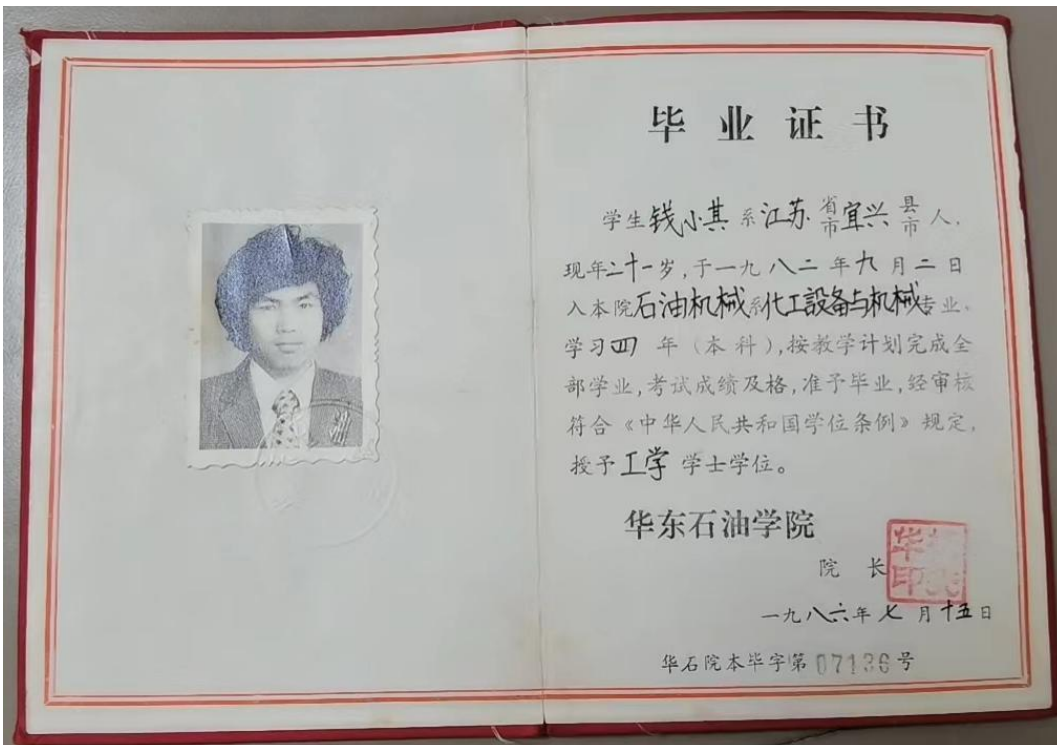 毕业证书
学生钱小其系江苏省市宜兴县市人,
现年二十一岁,于一九八二年九月二日
入本院石油机械系化工設备与机械专业,
学习四年(本科),按教学计划完成全
部学业,考试成绩及格,准予毕业,经审核
符合《中华人民共和国学位条例》规定,
授予工学学士学位。
华东石油学院
院长
一九八六年七月十五日
华石院本毕字第07136号